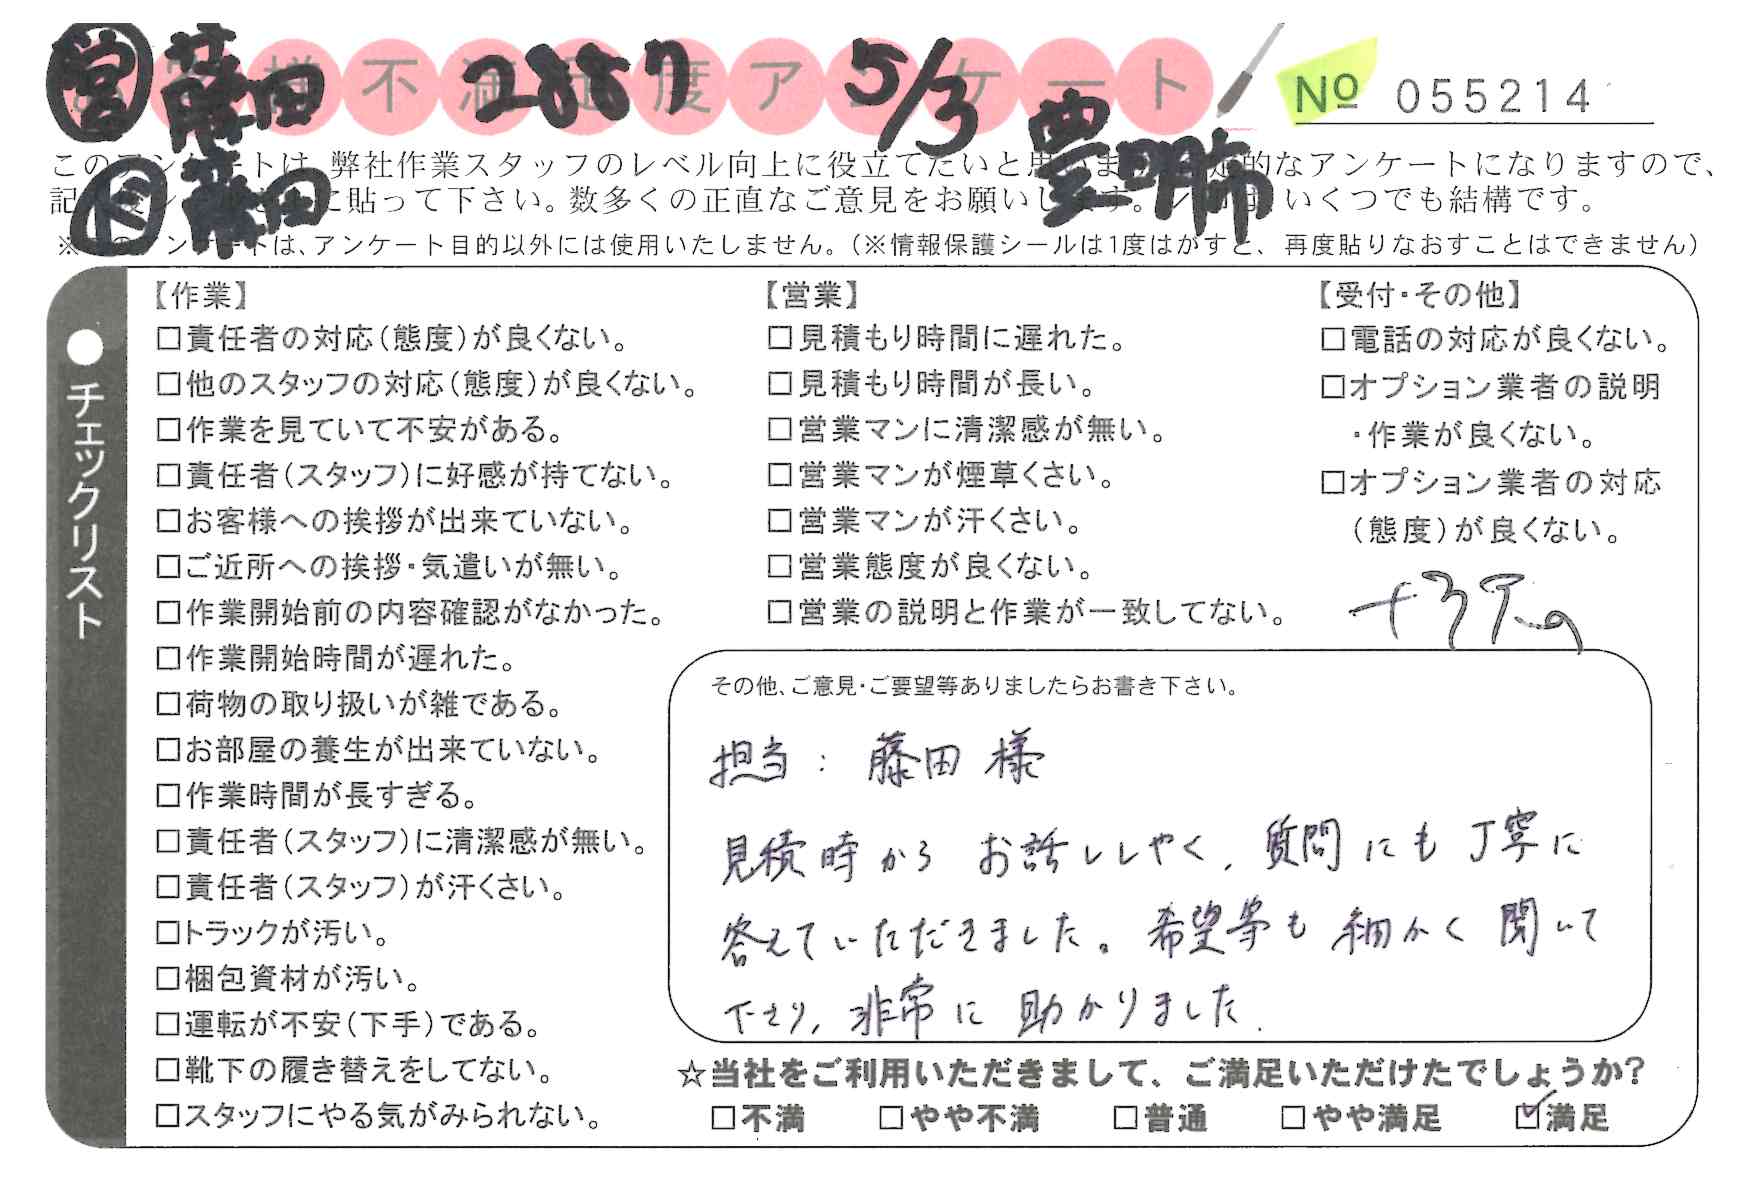 営 藤田 2887 5/3 豊明市
お客様不満足度アンケート
№ 055214
下 藤田
このアンケートは、弊社作業スタッフのレベル向上に役立てたいと思います。定期的なアンケートになりますので、
に貼って下さい。数多くの正直なご意見をお願いします。いくつでも結構です。
※このアンケートは、アンケート目的以外には使用いたしません。(※情報保護シールは1度はがすと、再度貼りなおすことはできません)
●チェックリスト
【作業】
□責任者の対応(態度)が良くない。
□他のスタッフの対応(態度)が良くない。
□作業を見ていて不安がある。
□責任者(スタッフ)に好感が持てない。
□お客様への挨拶が出来ていない。
□ご近所への挨拶・気遣いが無い。
□作業開始前の内容確認がなかった。
□作業開始時間が遅れた。
□荷物の取り扱いが雑である。
□お部屋の養生が出来ていない。
□作業時間が長すぎる。
□責任者(スタッフ)に清潔感が無い。
□責任者(スタッフ)が汗くさい。
□トラックが汚い。
□梱包資材が汚い。
□運転が不安(下手)である。
□靴下の履き替えをしてない。
□スタッフにやる気がみられない。
【営業】
□見積もり時間に遅れた。
□見積もり時間が長い。
□営業マンに清潔感が無い。
□営業マンが煙草くさい。
□営業マンが汗くさい。
□営業態度が良くない。
□営業の説明と作業が一致してない。
【受付・その他】
□電話の対応が良くない。
□オプション業者の説明
・作業が良くない。
□オプション業者の対応
(態度)が良くない。
その他、ご意見・ご要望等ありましたらお書き下さい。
担当：藤田様
見積時からお話ししやく、質問にも丁寧に
答えていただきました。希望等も細かく聞いて
下さり、非常に助かりました.
☆当社をご利用いただきまして、ご満足いただけたでしょうか?
□不満 □やや不満 □普通 □やや満足 ☑満足